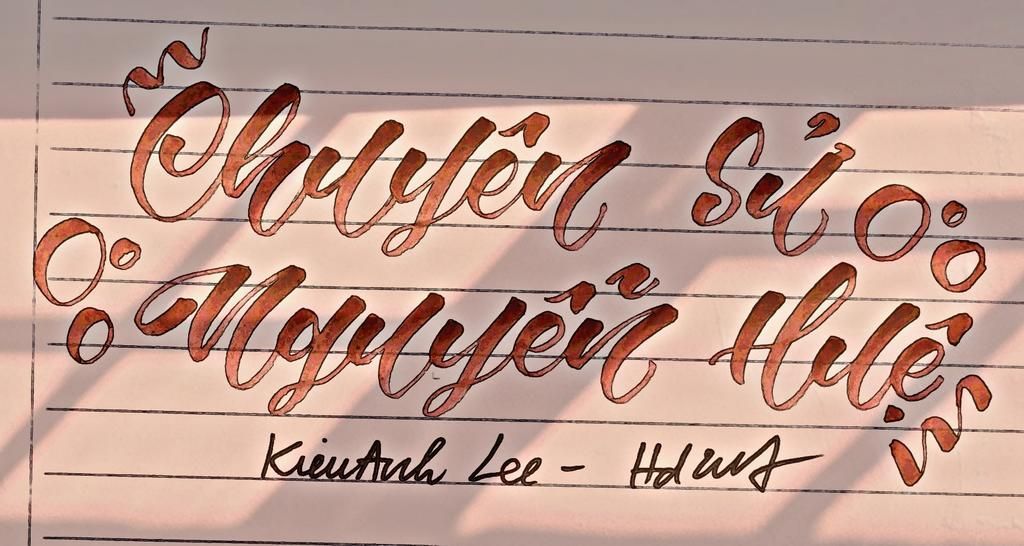 Chuyên Sử
Nguyễn Huệ
KienAnh Lee -